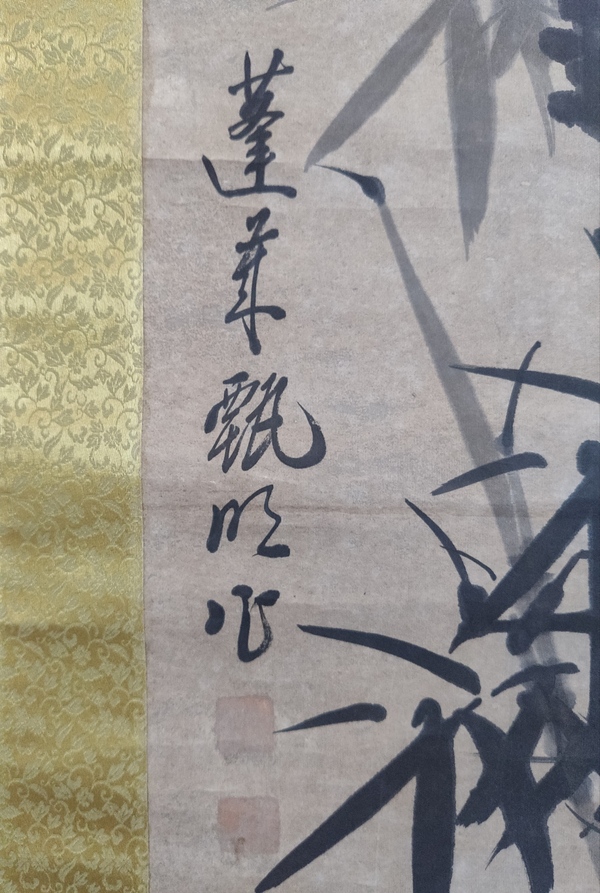 蓬萊甄明作